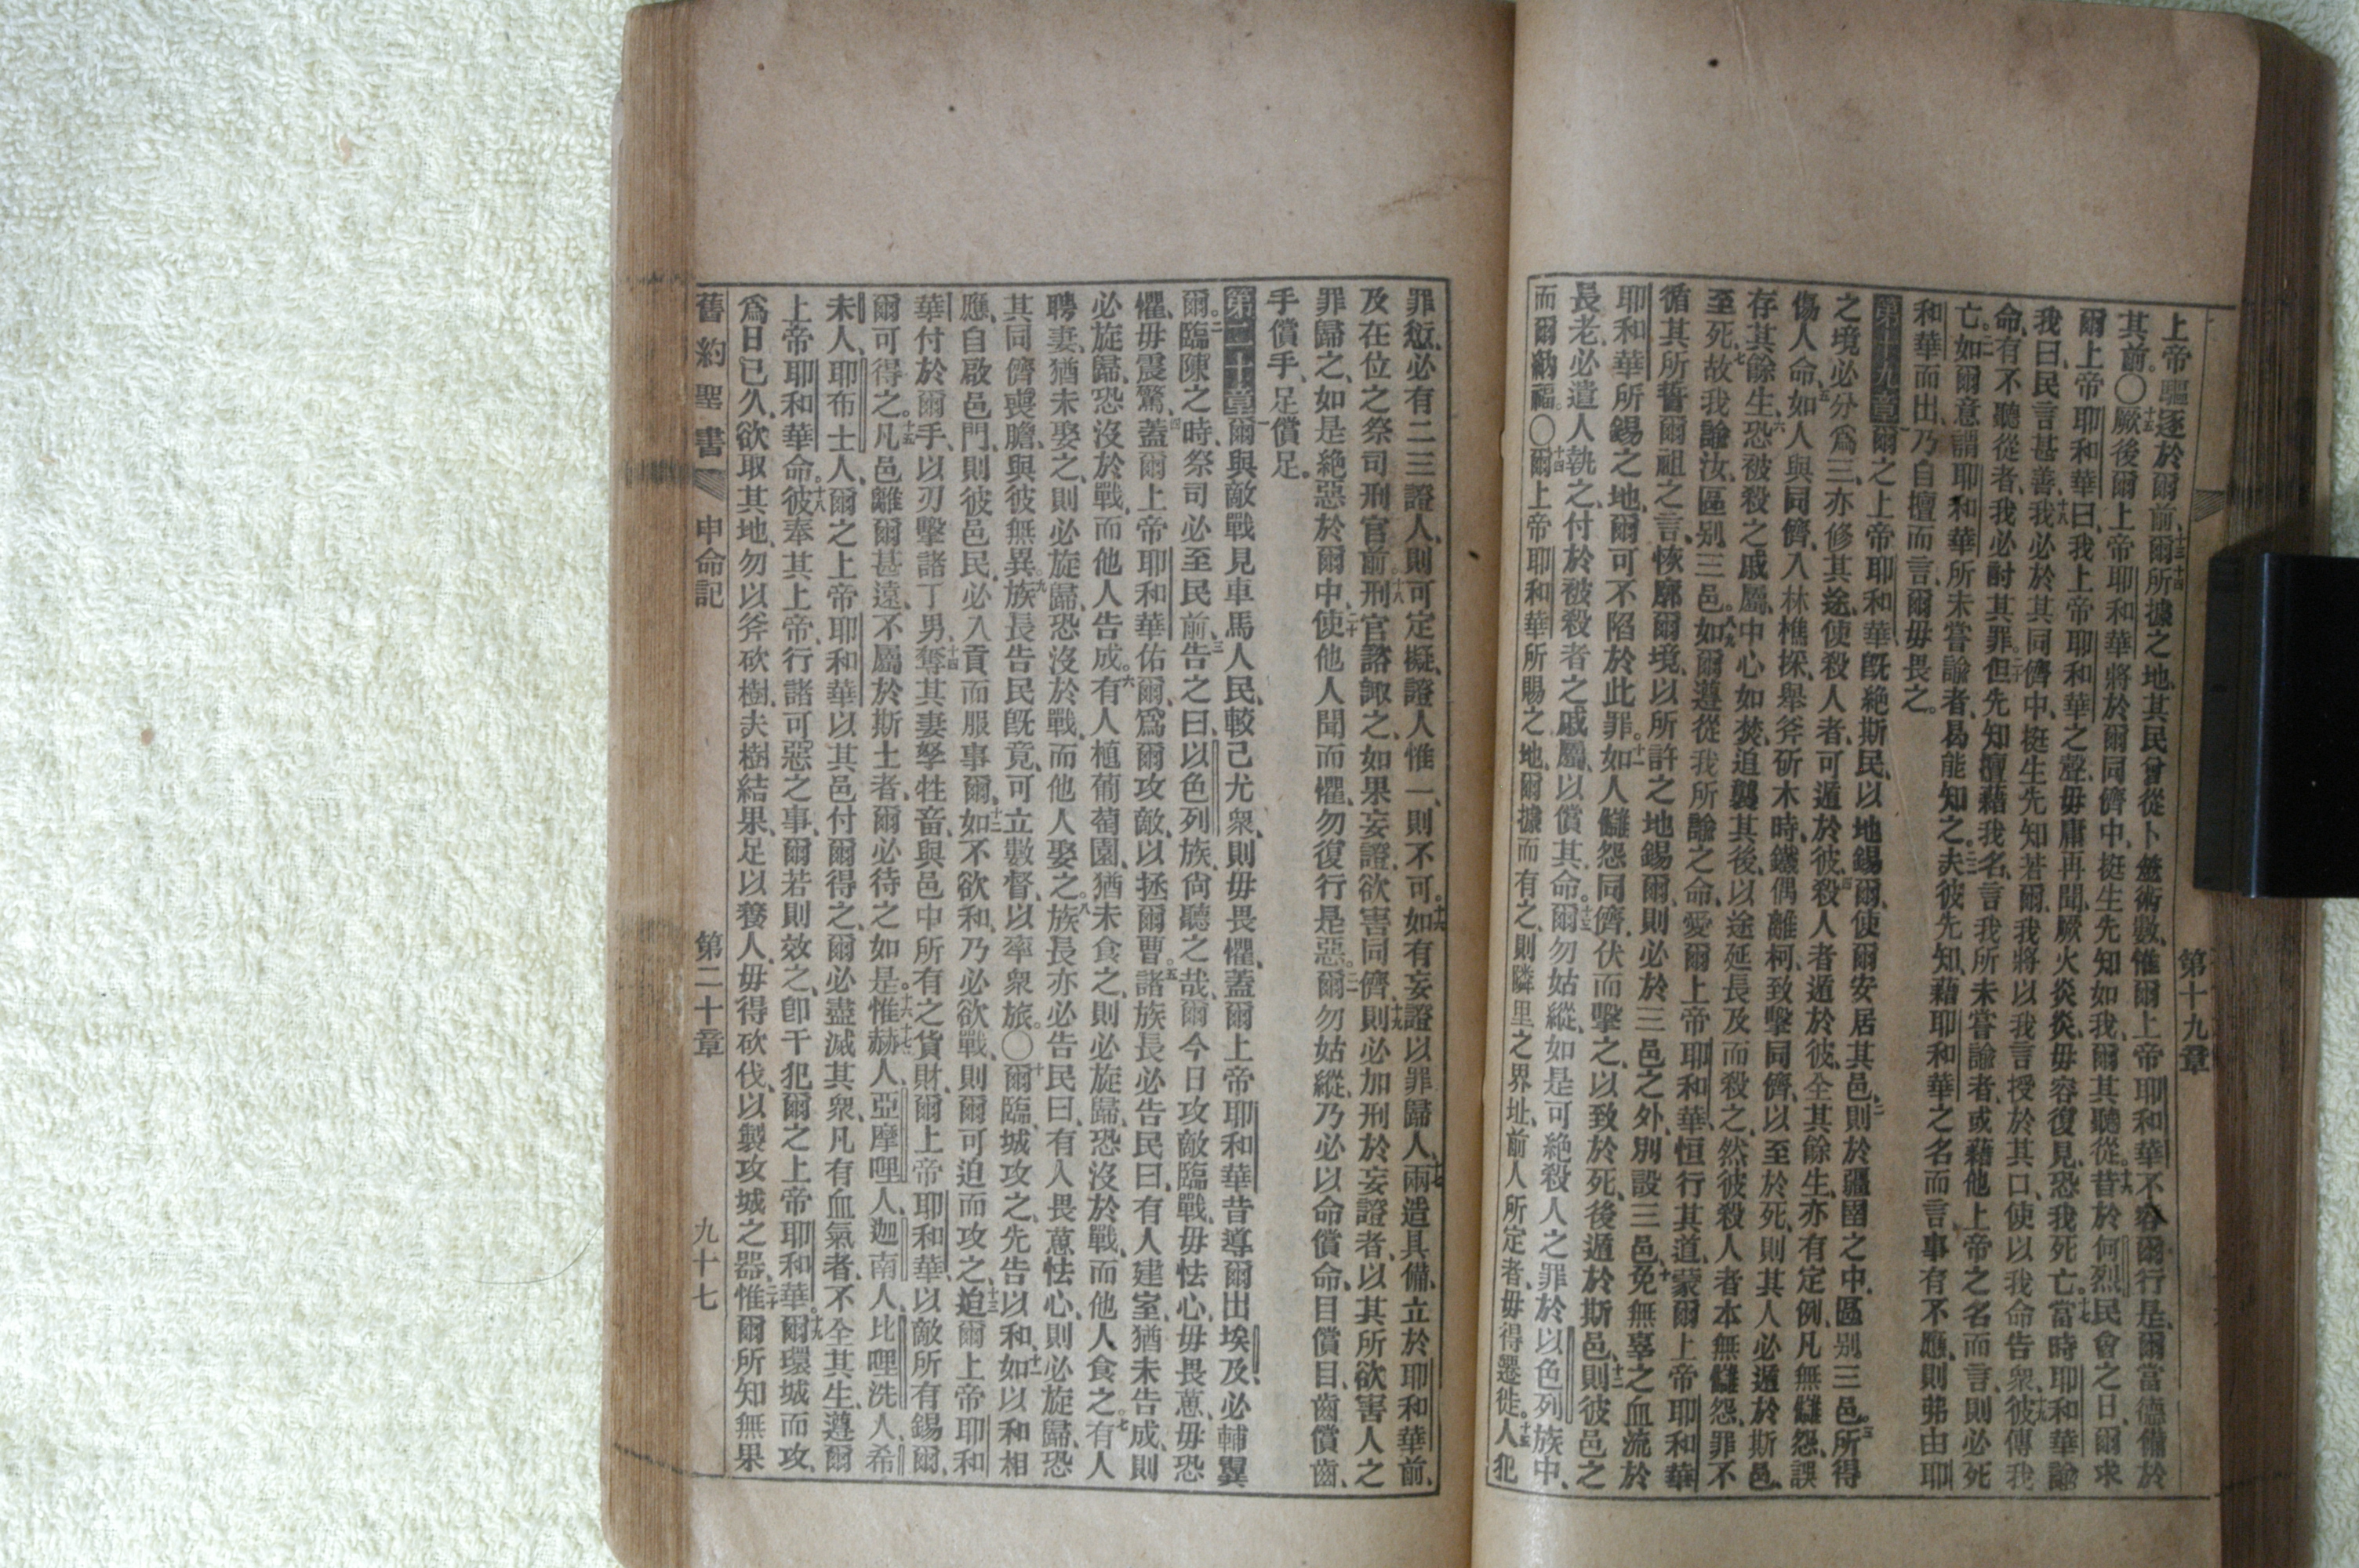 上帝驅逐於爾前、十三爾十四所據之地、其民曾從卜筮術數、惟爾上帝耶和華、不容爾行是、爾當德備於
其前。〇十五厥後爾上帝耶和華、將於爾同儕中、挺生先知如我、爾其聽從。十六昔於何烈民會之日、爾求
爾上帝耶和華曰、我上帝耶和華之聲、毋庸再聞、厥火炎炎、毋容復見、恐我死亡。十七當時耶和華諭
我曰、民言甚善、十八我必於其同儕中、挺生先知若爾、我將以我言授於其口、使以我命告衆、十九彼傳我
命、有不聽從者、我必討其罪。二十但先知擅藉我名、言我所未嘗諭者、或藉他上帝之名而言、則必死
亡。二一如爾意謂耶和華所未嘗諭者、曷能知之。二二夫彼先知、藉耶和華之名而言、事有不應、則弗由耶
和華而出、乃自擅而言、爾毋畏之。
第十九章一爾之上帝耶和華、旣絕斯民、以地錫爾、使爾安居其邑、二則於疆圉之中、區別三邑。三所得
之境、必分爲三、亦修其途、使殺人者、可遁於彼。四殺人者遁於彼、全其餘生、亦有定例、凡無讎怨、誤
傷人命、五如人與同儕、入林樵採、舉斧斫木時、鐵偶離柯、致擊同儕、以至於死、則其人必遁於斯邑、
存其餘生、六恐被殺之戚屬、中心如焚、追襲其後、以途延長、及而殺之、然彼殺人者、本無讎怨、罪不
至死、七故我諭汝、區別三邑。八九如爾遵從我所諭之命、愛爾上帝耶和華、恒行其道、蒙爾上帝耶和華
循其所誓爾祖之言、恢廓爾境、以所許之地錫爾、則必於三邑之外、別設三邑、十免無辜之血、流於
耶和華所錫之地、爾可不陷於此罪。十一如人讎怨同儕、伏而擊之、以致於死、後遁於斯邑、十二則彼邑之
長老、必遣人執之、付於被殺者之戚屬、以償其命。十三爾勿姑縱、如是可絕殺人之罪於以色列族中、
而爾納福。〇十四爾上帝耶和華所賜之地、爾據而有之、則隣里之界址、前人所定者、毋得遷徙。十五人犯
第十九章
罪愆、必有二三證人、則可定擬、證人惟一、則不可。十六如有妄證、以罪歸人、十七兩造具備、立於耶和華前、
及在位之祭司刑官前。十八刑官諮諏之、如果妄證、欲害同儕、十九則必加刑於妄證者、以其所欲害人之
罪歸之、如是絕惡於爾中、二十使他人聞而懼、勿復行是惡。二一爾勿姑縱、乃必以命償命、目償目、齒償齒、
手償手、足償足。
第二十章一爾與敵戰、見車馬人民、較己尤衆、則毋畏懼、蓋爾上帝耶和華、昔導爾出埃及、必輔翼
爾。二臨陳之時、祭司必至民前、三告之曰、以色列族、尙聽之哉、爾今日攻敵臨戰、毋怯心、毋畏葸、毋恐
懼、毋震驚、四蓋爾上帝耶和華佑爾、爲爾攻敵、以拯爾曹。五諸族長必告民曰、有人建室、猶未告成、則
必旋歸、恐沒於戰、而他人告成。六有人植葡萄園、猶未食之、則必旋歸、恐沒於戰、而他人食之。七有人
聘妻、猶未娶之、則必旋歸、恐沒於戰、而他人娶之。八族長亦必告民曰、有人畏葸怯心、則必旋歸、恐
其同儕喪膽、與彼無異。九族長告民旣竟、可立數督、以率衆旅。〇十爾臨城攻之、先告以和、十一如以和相
應、自啟邑門、則彼邑民、必入貢而服事爾、十二如不欲和、乃必欲戰、則爾可迫而攻之、十三迨爾上帝耶和
華付於爾手、以刃擊諸丁男、十四奪其妻孥牲畜、與邑中所有之貨財、爾上帝耶和華、以敵所有錫爾、
爾可得之。十五凡邑離爾甚遠、不屬於斯土者、爾必待之如是。十六十七惟赫人、亞摩哩人、迦南人、比哩洗人、希
未人、耶布士人、爾之上帝耶和華、以其邑付爾得之、爾必盡滅其衆、凡有血氣者、不全其生、遵爾
上帝耶和華命。十八彼奉其上帝、行諸可惡之事、爾若則效之、卽干犯爾之上帝耶和華。十九爾環城而攻、
爲日已久、欲取其地、勿以斧砍樹、夫樹結果、足以養人、毋得砍伐、以製攻城之器、二十惟爾所知無果
舊約聖書 申命記 第二十章 九十七